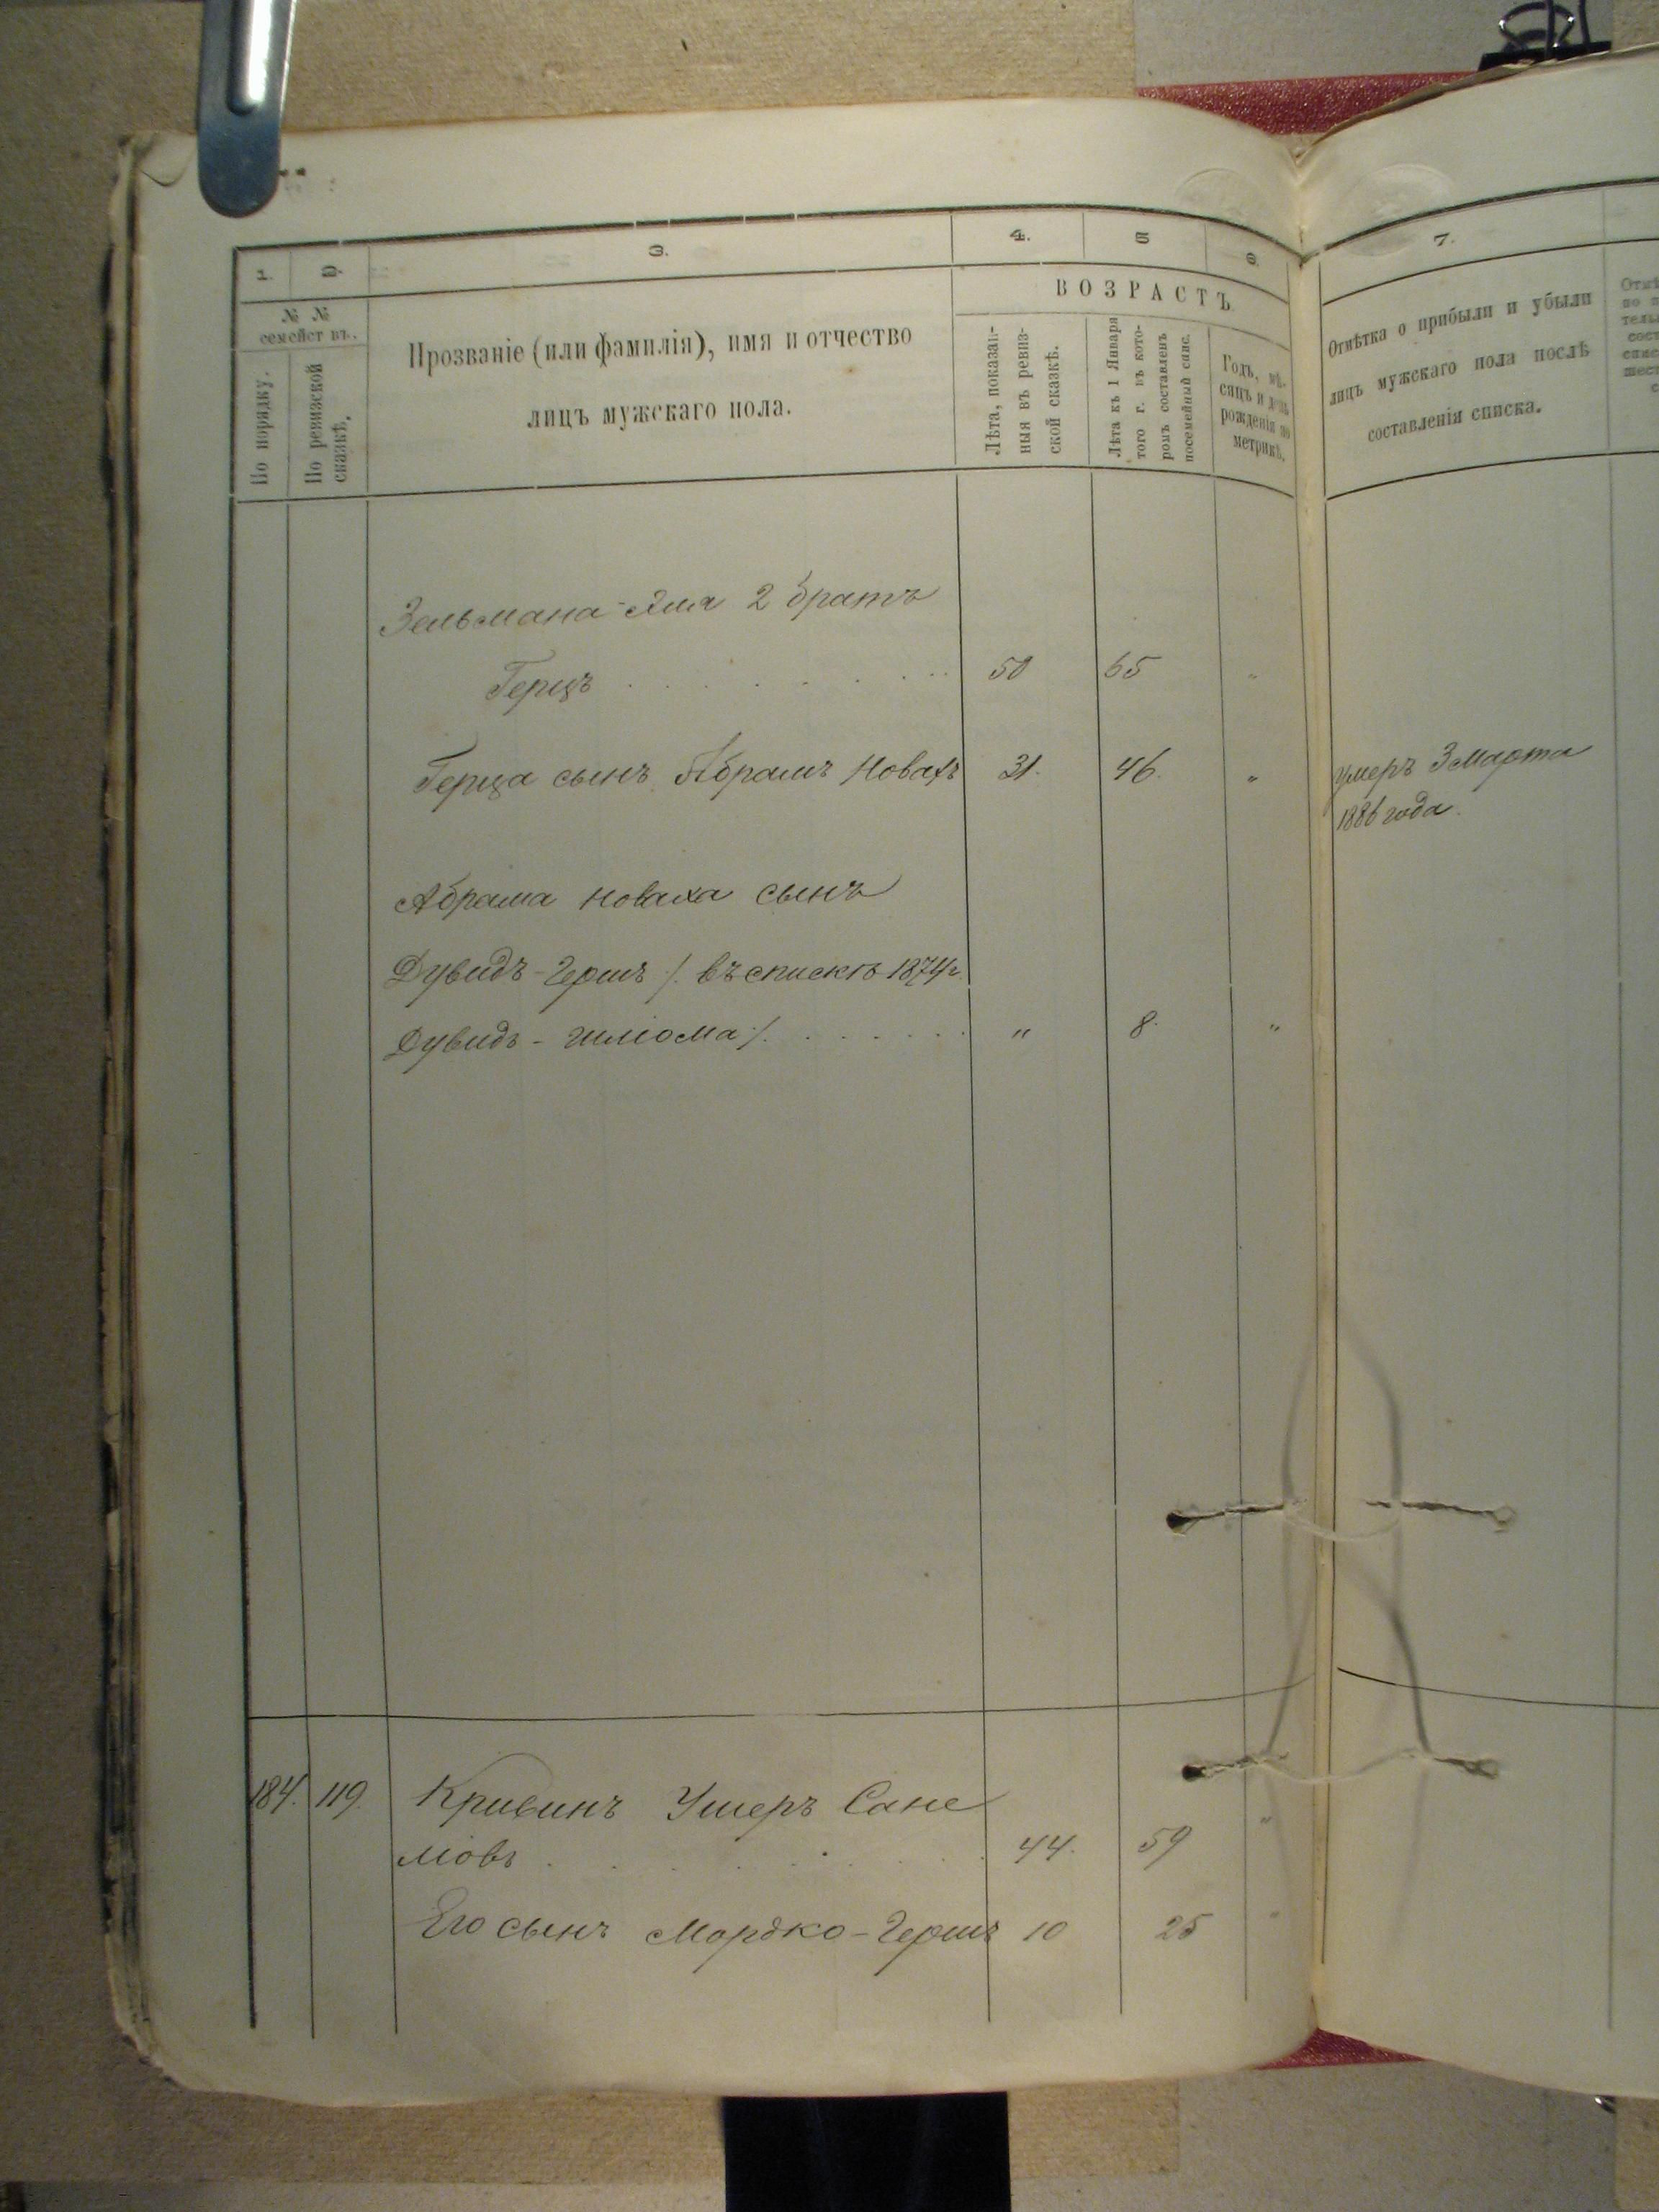 1. 2. 3. 4. 5 6. 7.
№ №
семействъ.
По порядку.
По ревизской
сказкѣ.
Прозваніе (или фамилія), имя и отчество
лицъ мужскаго пола.
ВОЗРАСТЪ
Лѣта, показан-
ныя въ ревиз-
ской сказкѣ.
Лѣта къ 1 Января
того г. въ кото-
ромъ составленъ
посемейный спис.
Годъ, мѣ-
сяцъ и день
рожденія по
метрикѣ.
Отмѣтка о прибыли и убыли
лицъ мужскаго пола послѣ
составленія списка.
Зельмана 2 братъ
Герцъ 50 65 "
Герца сынъ Абрамъ Новахъ 31. 46. " умеръ 3 Марта
1886 года.
Абрама Новаха сынъ
Дувидъ-Гершъ /. въ спискѣ 1874 г.
Дувидъ - Шліома / " 8. "
184. 119. Кривинъ Ушеръ Сане
мовъ 44. 59 "
Его сынъ Мордко-Гершъ 10 25 "